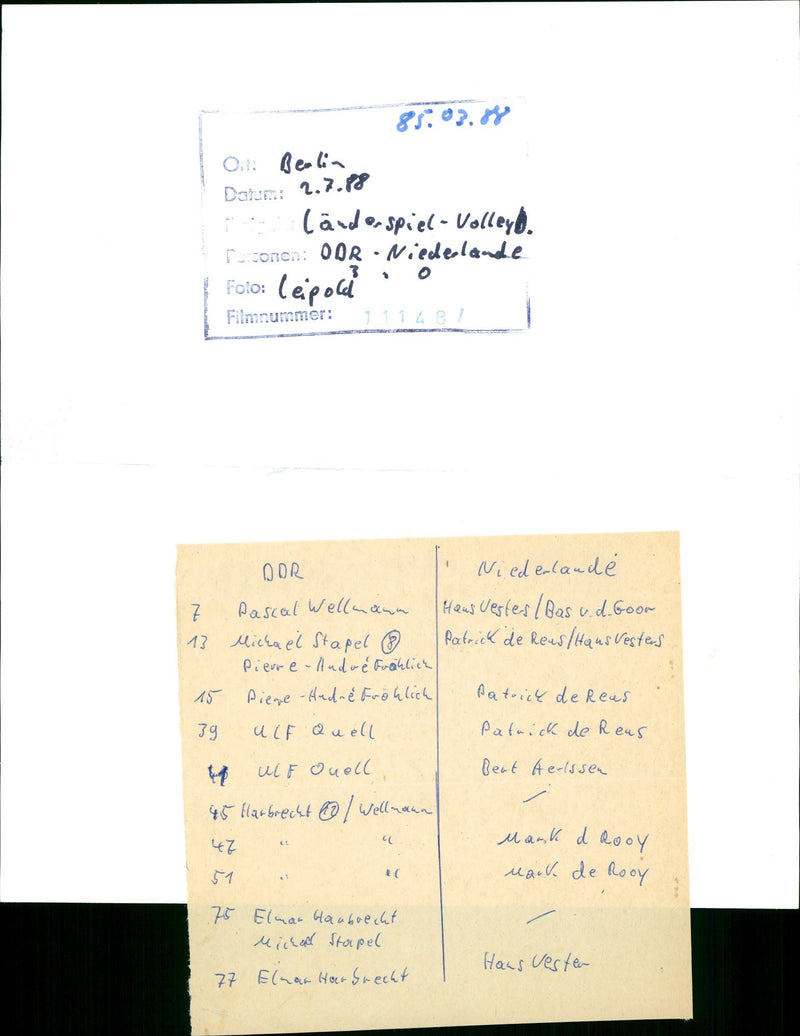 85.03.88
Ort: Berlin
Datum: 2.7.88
Länderspiel-Volleyb.
Personen: DDR - Niederlande
3 : 0
Foto: Leipold
Filmnummer: 11148/
DDR Niederlande
7 Pascal Wellmann Hans Vesters/Bas v.d.Goor
13 Michael Stapel 8 Patrick de Reus/Hans Vesters
Pierre-André Fröhlich
15 Pierre-André Fröhlich Patrick de Reus
39 Ulf Quell Patrick de Reus
41 Ulf Quell Bert Aerssen
45 Harbrecht 12 / Wellmann —
47 " " Mark d Rooy
51 " " Mark de Rooy
75 Elmar Harbrecht —
Michael Stapel
77 Elmar Harbrecht Hans Vester